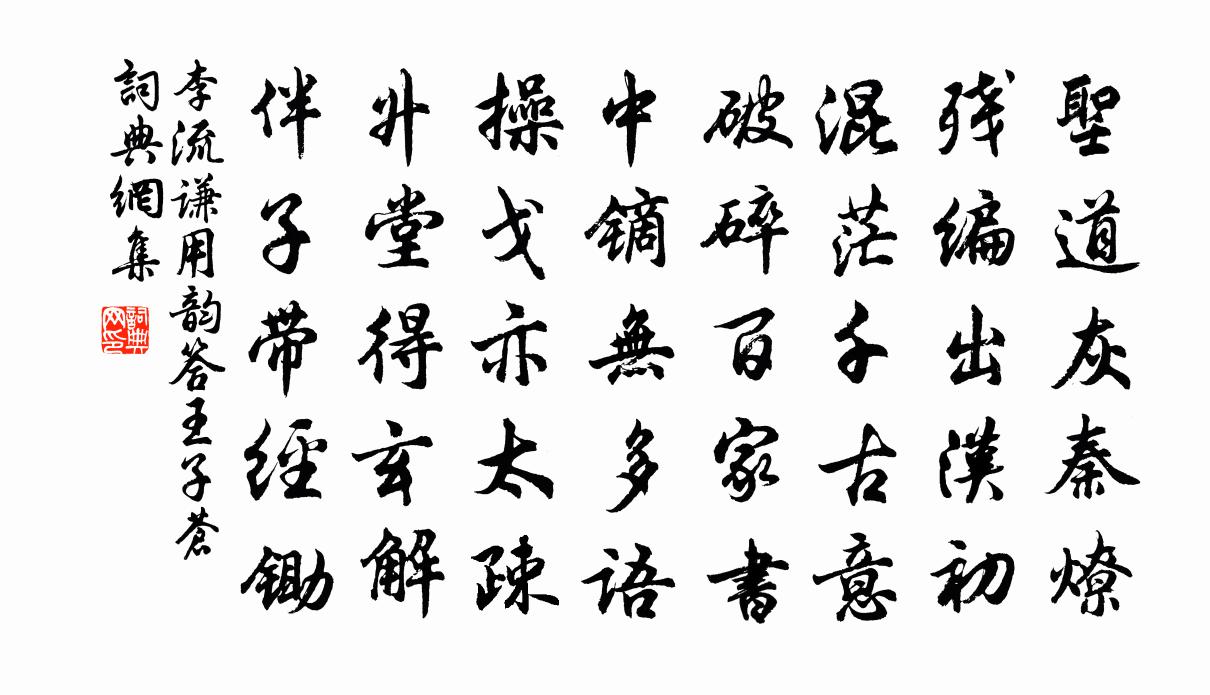 聖道灰秦燎
残编出漢初
混茫千古意
破碎百家書
中镝無多語
操戈亦太疎
升堂得玄解
伴子带經鋤
李流谦用韵答王子蒼
詞典網集
詞典网印